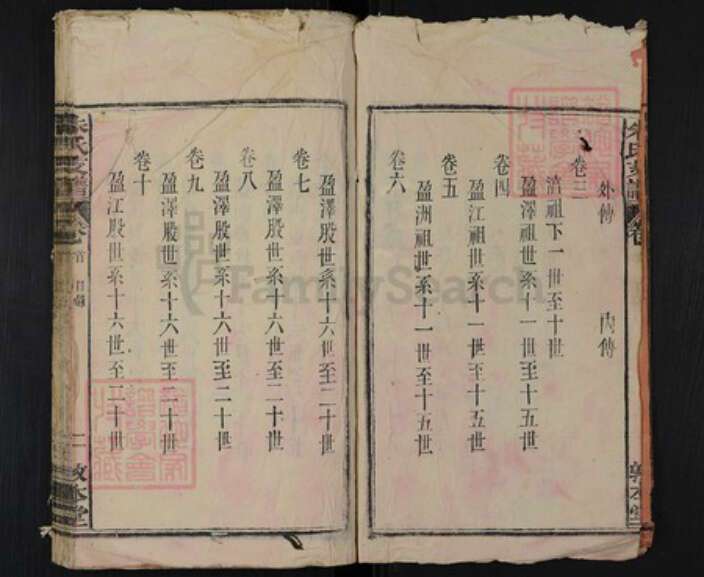 外傳　內傳
卷三
清祖下一世至十世
卷四
盈澤祖世系十一世至十五世
盈江祖世系十一世至十五世
卷五
盈洲祖世系十一世至十五世
卷六
盈澤股世系十六世至二十世
卷七
盈澤股世系十六世至二十世
卷八
盈澤股世系十六世至二十世
卷九
盈澤股世系十六世至二十世
卷十
盈江股世系十六世至二十世
朱氏支譜
卷首 目錄
二 敦本堂
FamilySearch